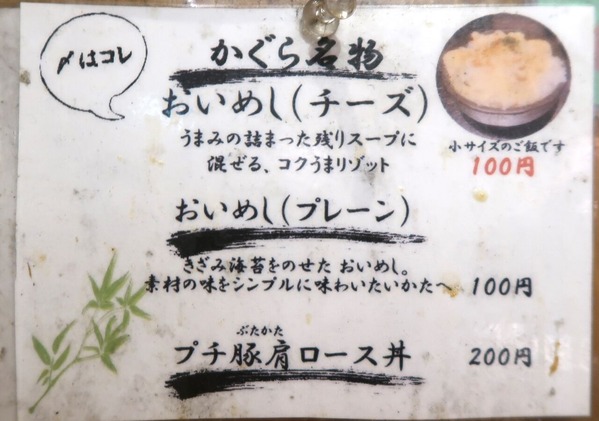 〆はコレ
かぐら名物
おいめし(チーズ)
うまみの詰まった残りスープに
混ぜる、コクうまリゾット
小サイズのご飯です
100円
おいめし(プレーン)
きざみ海苔をのせた おいめし。
素材の味をシンプルに味わいたいかたへ 100円
ぶたかた
プチ豚肩ロース丼 200円